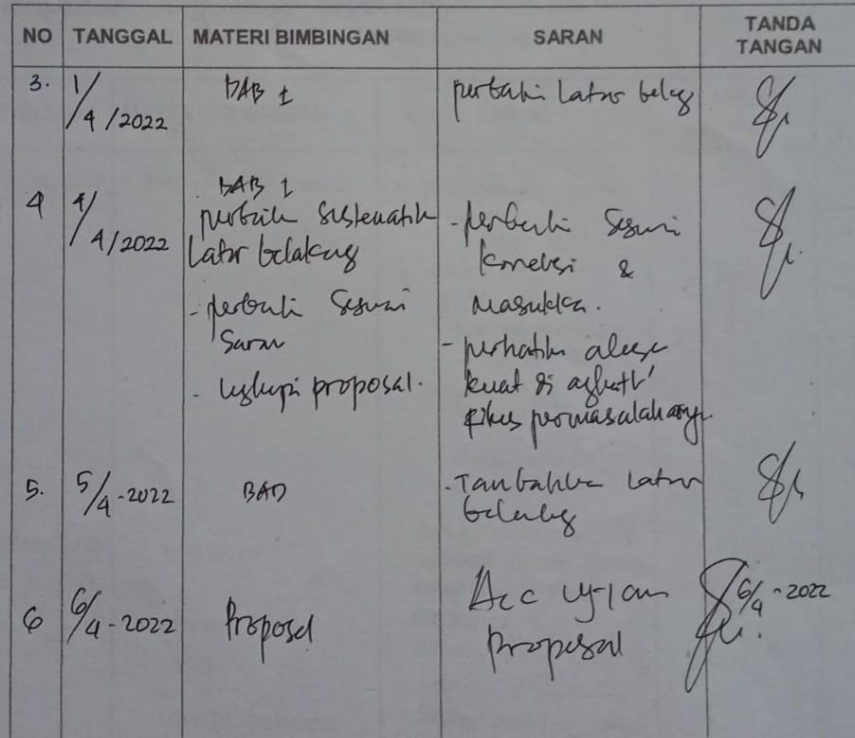 NO TANGGAL MATERI BIMBINGAN SARAN TANDA TANGAN
3. 1/4/2022 BAB 1 perbaiki Latar belag
4 4/4/2022 BAB 1
perbaiki sistematik
Latar belakang
- perbaiki sesuai
saran
- lengkapi proposal.
- perbaiki sesuai
koreksi &
masukkan.
- perhatikan
kuat di
permasalahannya.
5. 5/4-2022 BAB
- Tambahkan Latar
belakang
6 6/4-2022 Proposal
Acc ujian
proposal
6/4-2022